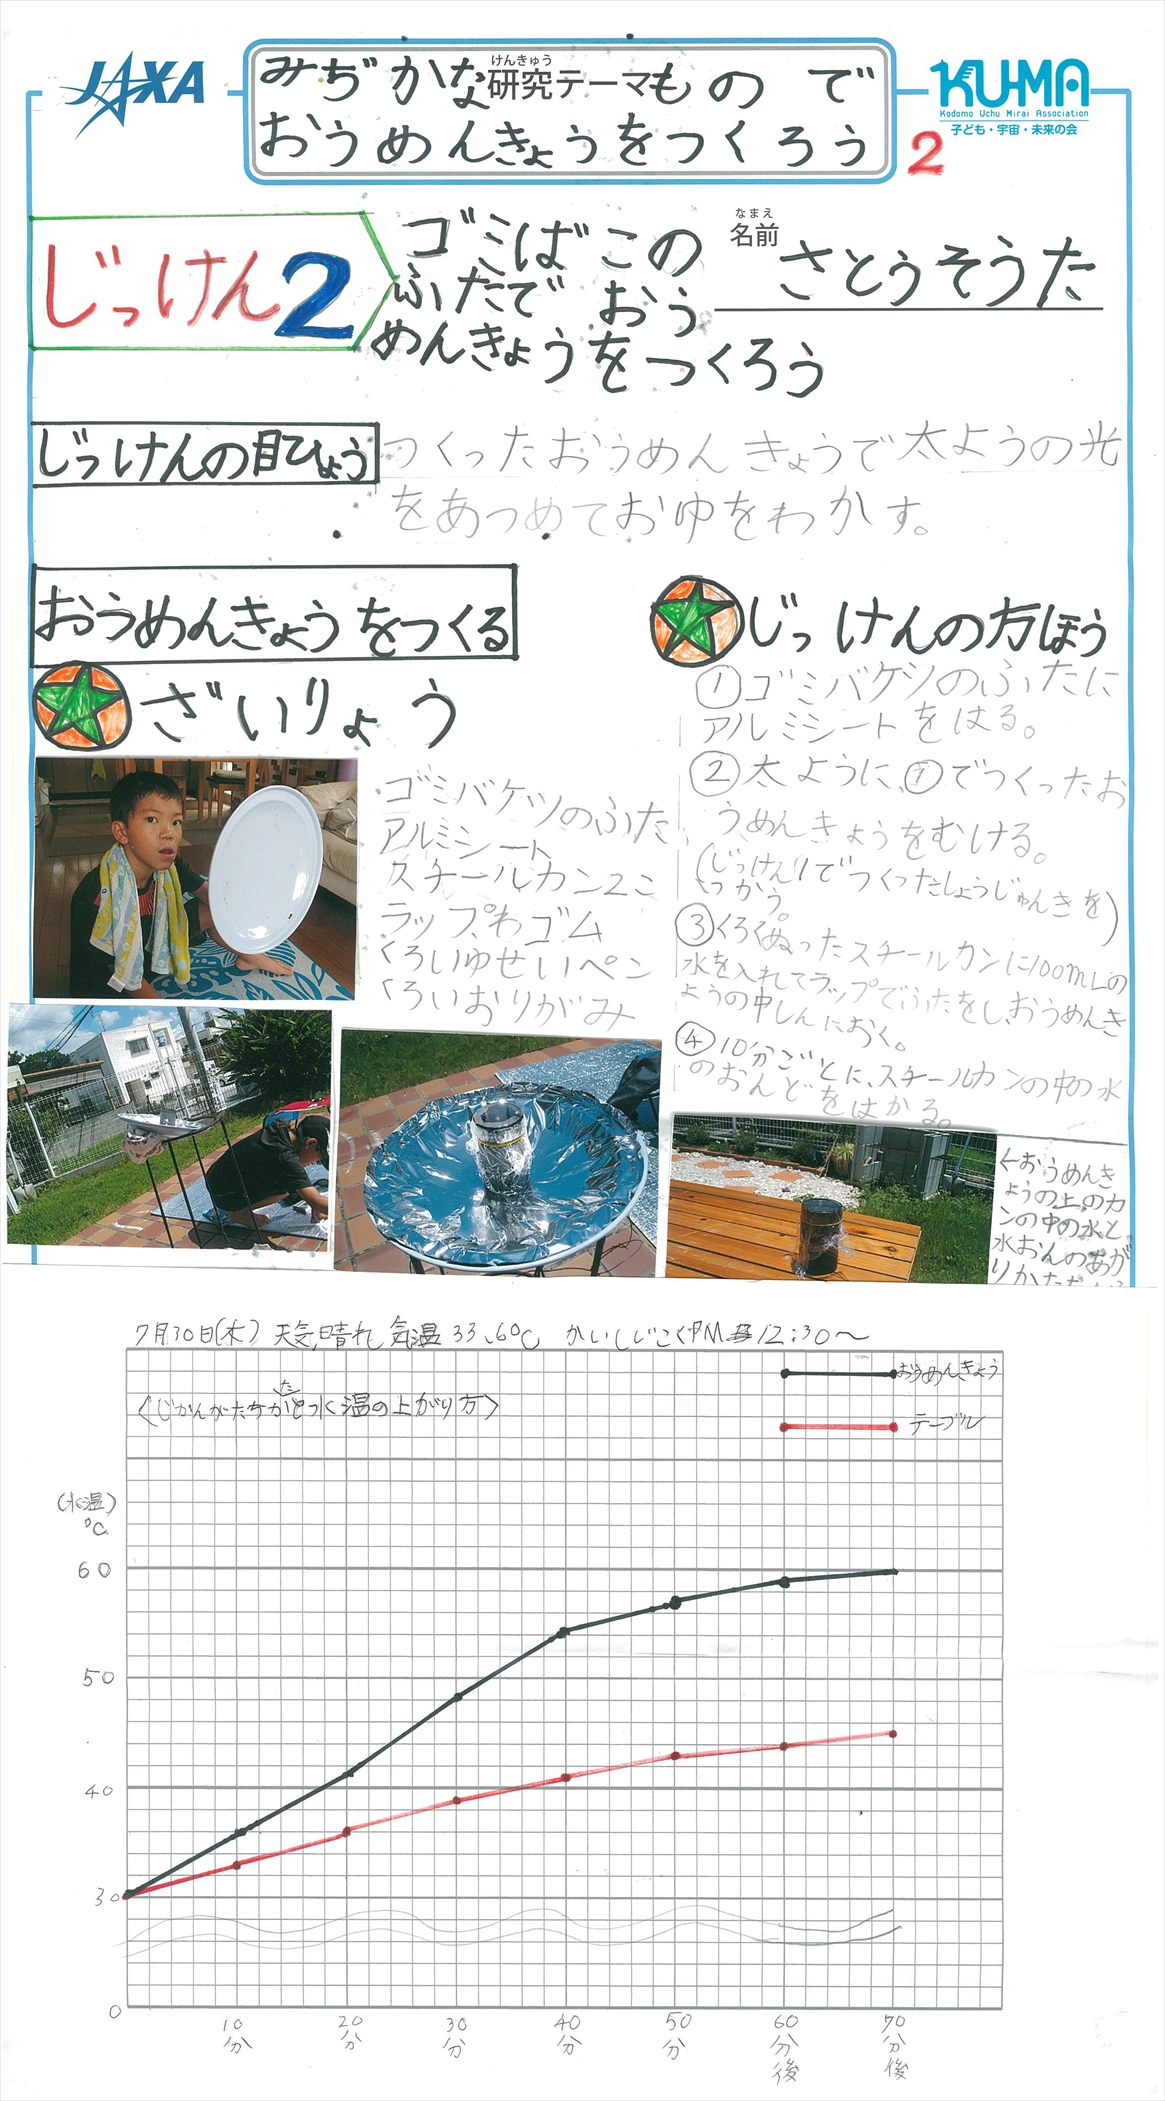 JAXA
みぢかな研究テーマもので
けんきゅう
おうめんきょうをつくろう
KU-MA
Kodomo Uchu Mirai Association
子ども・宇宙・未来の会
2
じっけん2
ゴミばこの
ふたで おう
めんきょうをつくろう
なまえ
名前
さとうそうた
じっけんの目ひょう
つくったおうめんきょうで太ようの光
をあつめておゆをわかす。
おうめんきょうをつくる
ざいりょう
ゴミバケツのふた
アルミシート
スチールカン2こ
ラップわゴム
くろいゆせいペン
くろいおりがみ
じっけんの方ほう
①ゴミバケツのふたに
アルミシートをはる。
②太ように、①でつくったお
うめんきょうをむける。
(じっけん1でつくったしょうじゅんきを)
つかう。
③くろくぬったスチールカンに100mLの
水を入れてラップでふたをし、おうめんき
ょうの中しんにおく。
④10分ごとに、スチールカンの中の水
のおんどをはかる。
←おうめんき
ょうの上のカ
ンの中の水と
水おんのあが
りかた
7月30日(木) 天気晴れ 気温33.6℃ かいしじこくPM12:30〜
おうめんきょう
〈じかんがたつ
た
水温の上がり方〉
テーブル
(水温)
℃
60
50
40
30
0
10分
20分
30分
40分
50分
60分後
70分後